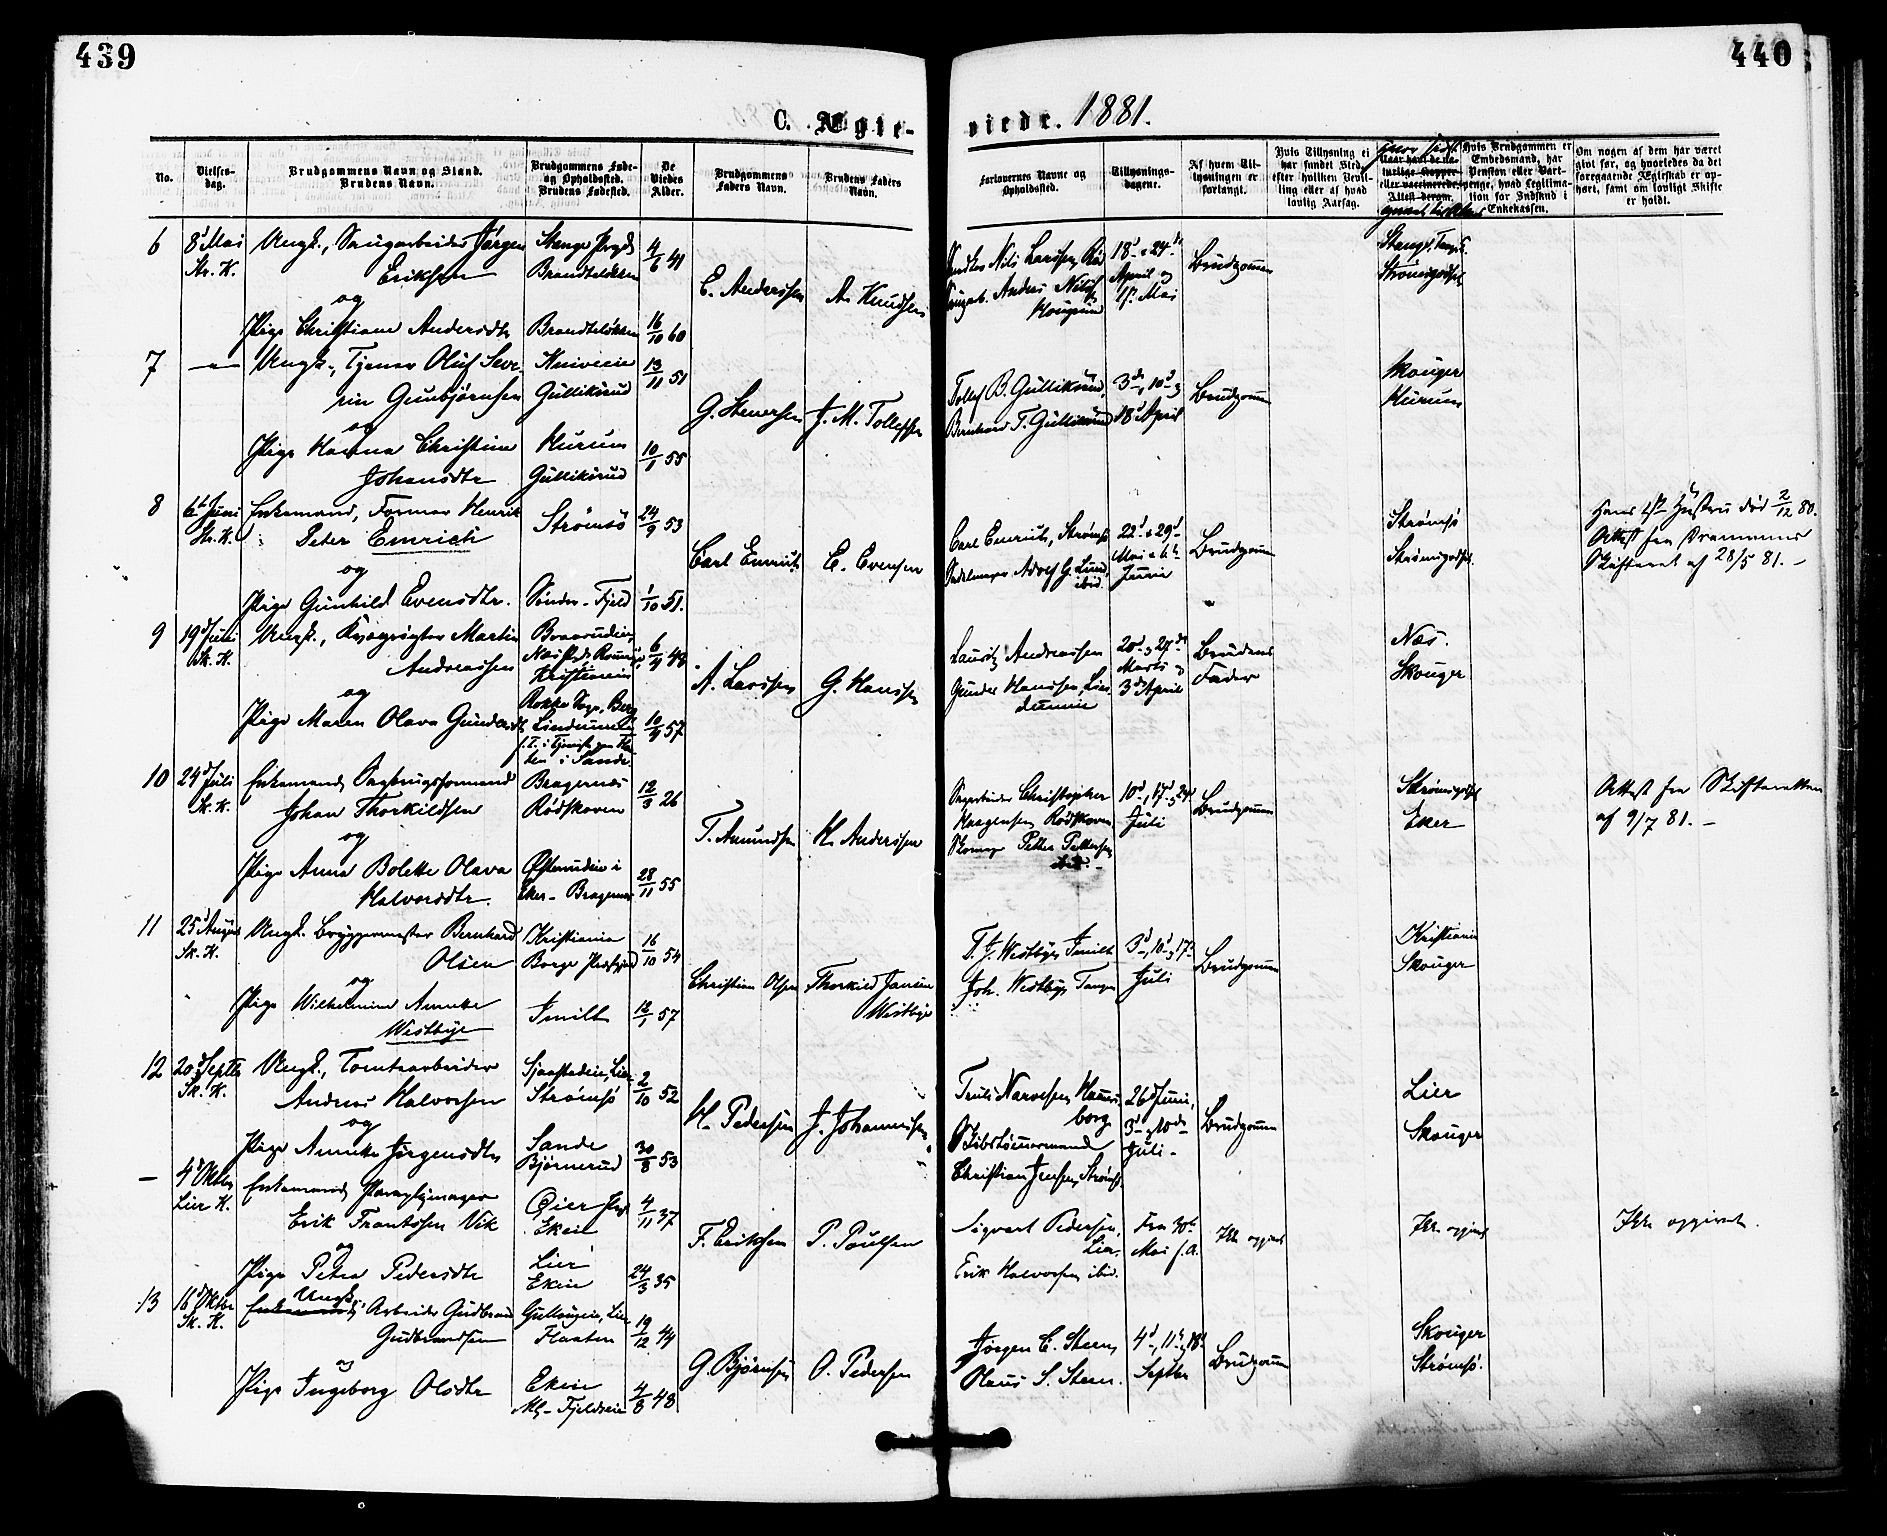 439
440
C. Ægte-
viede. 1881.
No.
Vielses-
dag.
Brudgommens Navn og Stand.
Brudens Navn.
Brudgommens Føde-
og Opholdssted.
Brudens Fødested.
De
Viedes
Alder.
Brudgommens
Faders Navn.
Brudens Faders
Navn.
Forlovernes Navne og
Opholdssted.
Tillysnings-
dagene.
Af hvem Til-
lysningen er
forlangt.
Hvis Tillysning ei
har fundet Sted,
efter hvilken Bevil-
ling eller af hvad
lovlig Aarsag.
Naar havt de na-
turlige Kopper
eller vaccinerede.
Attest derom.
Hvis Brudgommen er
Embedsmand, har
Pension eller Vart-
penge, hvad Legitima-
tion for Indskud i
Enkekassen.
Om nogen af dem har været
givt før, og hvorledes da det
foregaaende Ægteskab er op-
hørt, samt om lovligt Skifte
er holdt.
6
8d Mai
Str. K.
Ungk., Saugarbeider Jørgen
Eriksen
og
Pige Christiane Andersdtr
Stange Prgd
Brandteløkken
Brandteløkken
4/6 41
16/10 60
E. Anderssen
A. Knudsen
Nils Larssen
Anders Nilss
Hougsund
18d & 24de
April og
1ste Mai
Brudgommen
Stange, Tangen
Strømsgodset
7
Ungk., Tjener Oluf Seve-
rin Gunbjørnsen
og
Pige Hanna Christine
Johansdtr
Kniveeie
Gulliksrud
Hurum
Gulliksrud
13/11 51
10/1 55
G. Stenersen
J. M. Tollefsen
Tollef B. Gulliksrud,
Bernhard T. Gulliksrud
3de, 10d &
18d April
Brudgommen
Skouger
Hurum
8
6te Juni
Str. K.
Enkemand, Former Henrik
Peter Emrich
og
Pige Gunhild Evensdtr.
Strømsø
Søndre-Fjeld
24/9 53
1/10 51.
Carl Emrich
E. Evensen
Carl Emrich, Strømsø
Adolf G. Lund,
ibid.
22d & 29d
Mai & 6te
Juni
Brudgommen
Strømsø
Strømsgodset
Hans 1ste Hustru død 2/12 80.
Attest fra Drammens
Skifteret af 28/5 81. –
9
19d Juni
Sk. K.
Ungk., Kvægrøgter Martin
Andreassen
og
Pige Maren Olava Gundersdtr
Kristiania
Rokke Sogn, Berg
i Sande
6/4 48
10/4 57
A. Larssen
G. Hanssen
Lauritz Andreassen
Gunder Hanssen, Lin-
derum
20d, 27de
Marts og
3de April
Brudens
Fader
Næs.
Skouger
10
24d Juli
Sk. K.
Enkemand, Saugbrugsformand
Johan Thorkildsen
og
Pige Anna Bolette Olava
Halvorsdtr.
Bragernæs
Rødskoven
Eker – Bragernæs
12/3 26
28/11 55
T. Amundsen
H. Anderssen
Christopher
Haagensen Rødskoven
Petter Pettersen
ibid. –
10d, 17d & 24d
Juli
Brudgommen
Strømsgodset
Eker
Attest fra Skifteretten
af 9/7 81. –
11
25d August
Sk. K.
Ungk. Bryggermester Bernhard
Olsen
og
Pige Wilhelmine Annette
Westbye
Kristiania
Borge Præstegjeld
Smilt
16/10 54
12/1 57
Christian Olsen
Thorkild Jansen
Westbye
T. J. Westbye Smilt
Joh. Westbye Tangen
3d, 10d & 17d
Juli
Brudgommen
Kristiania
Skouger
12
20d Septbr
Sk. K.
Ungk., Tomtearbeider
Andreas Halvorsen
og
Pige Annette Jørgensdtr
Sjaastadeie, Lier
Strømsø
Sande
Bjørnerud
2/10 52
30/8 53
H. Pedersen
J. Johannessen
Truls Narvesen, Hamrs-
borg
Skibstømmermand
Christian Jensen, Strømsø
26d Juni,
3d & 10de
Juli –
Brudgommen
Lier
Skouger
–
4d Oktbr
Lier K.
Enkemand, Paraplymager
Erik Frantssen Vik
og
Pige Petra Pedersdtr
Øier Prgd
Ekeie
Lier
Ekeie
4/11 37
24/3 35
F. Eriksen
P. Poulsen
Sigvart Pedersen,
Lier.
Erik Halvorsen, ibid.
Fra 30te
Mai f. A.
Ikke opgivet
Ikke opgivet
Ikke opgivet.
13
16d Oktbr
Sk. K.
Ungk.
Enkemand, Arbeider Gudbrand
Gudbrandsen
og
Pige Ingeborg Olsdtr
Gullaugeie, Lier
Flaaten
Ekeie
Ml. – Fjeldseie
19/12 44
4/8 48
G. Bjørnsen
O. Pedersen
Jørgen E. Steen,
Olaus S. Steen.
4d, 11te, 18d
Septbr
Brudgommen
Skouger
Strømsø.